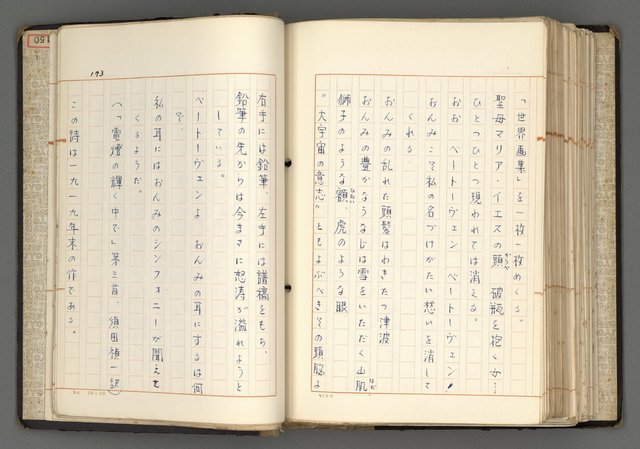 「世界画集」を一枚一枚めくる。
聖母マリア・イエスの頭、破瓶を抱く女…
ひとつひとつ現われては消える。
おお ベートーヴェン ベートーヴェン!
おんみこそ私の名づけがたい愁いを消して
くれる。
おんみの乱れた頭髪はわきたつ津波
おんみの豊かなうなじは雪をいただく山肌
獅子のような額、虎のような眼
“大宇宙の意志”ともよぶべきその頭脳よ
173
右手には鉛筆、左手には譜稿をもち、
鉛筆の先からは今まさに怒涛が溢れようと
している。
ベートーヴェンよ おんみの耳にするは何
ぞ、
私の耳にはおんみのシンフォニーが聞えて
くるようだ。
(「電燈の輝く中で」第三首、須田禎一訳)
この詩は一九一九年末の作である。